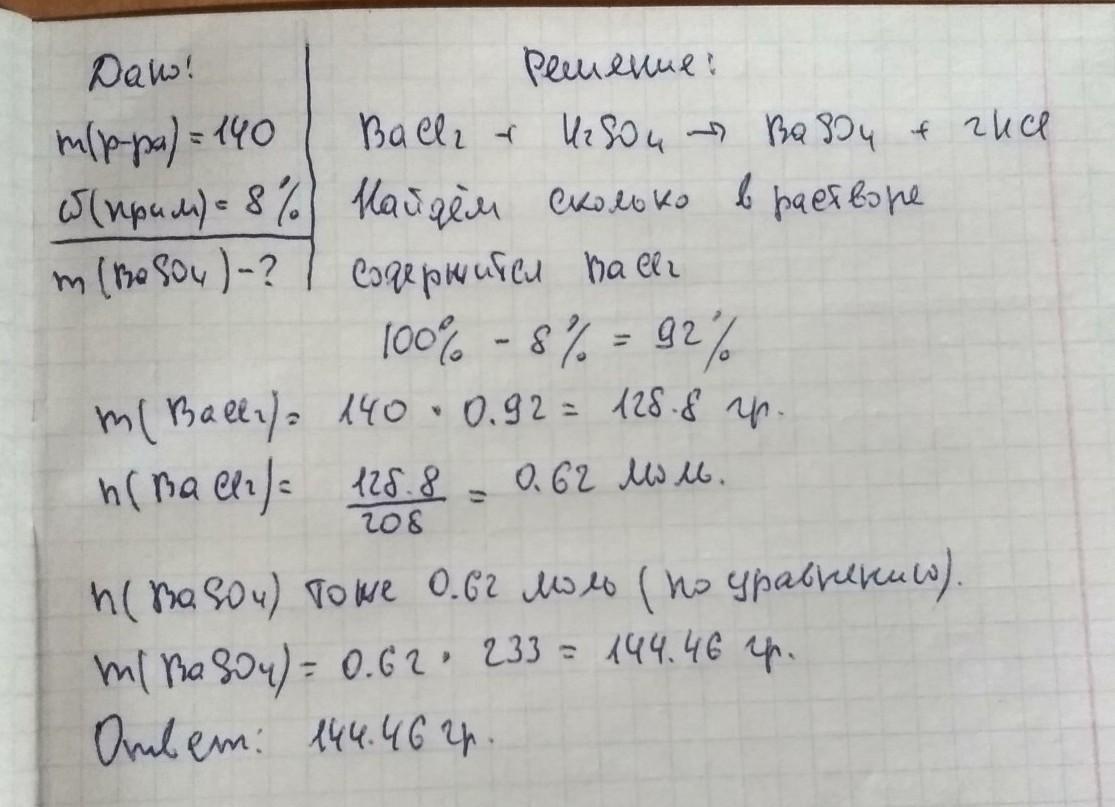 Дано:
m(р-ра) = 140
ω(прим) = 8%
m(BaSO4) - ?
Решение:
BaCl2 + H2SO4 → BaSO4 + 2HCl
Найдём сколько в растворе
содержится BaCl2
100% - 8% = 92%
m(BaCl2) = 140 · 0.92 = 128.8 гр.
n(BaCl2) = 128.8 / 208 = 0.62 моль.
n(BaSO4) тоже 0.62 моль (по уравнению).
m(BaSO4) = 0.62 · 233 = 144.46 гр.
Ответ: 144.46 гр.